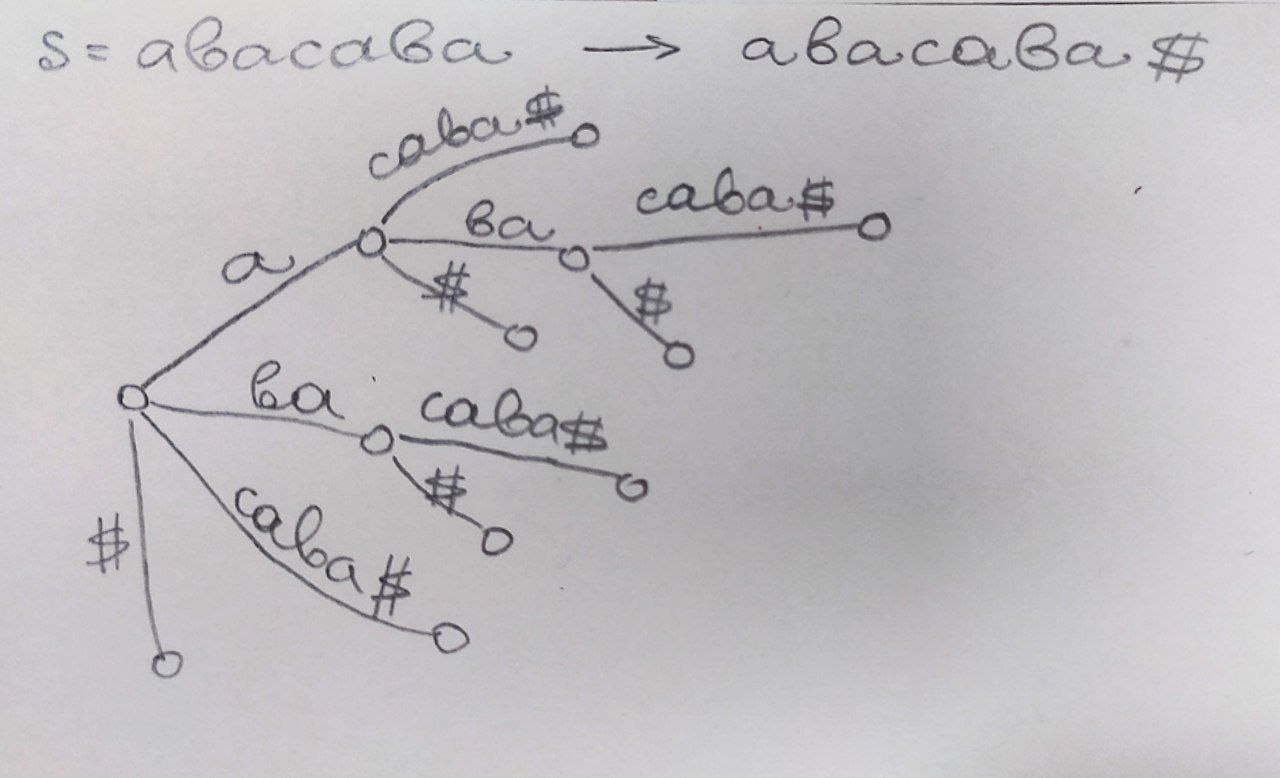 s = abacaba → abacaba$
caba$
caba$
ba
a
$
$
ba
caba$
$
caba$
$